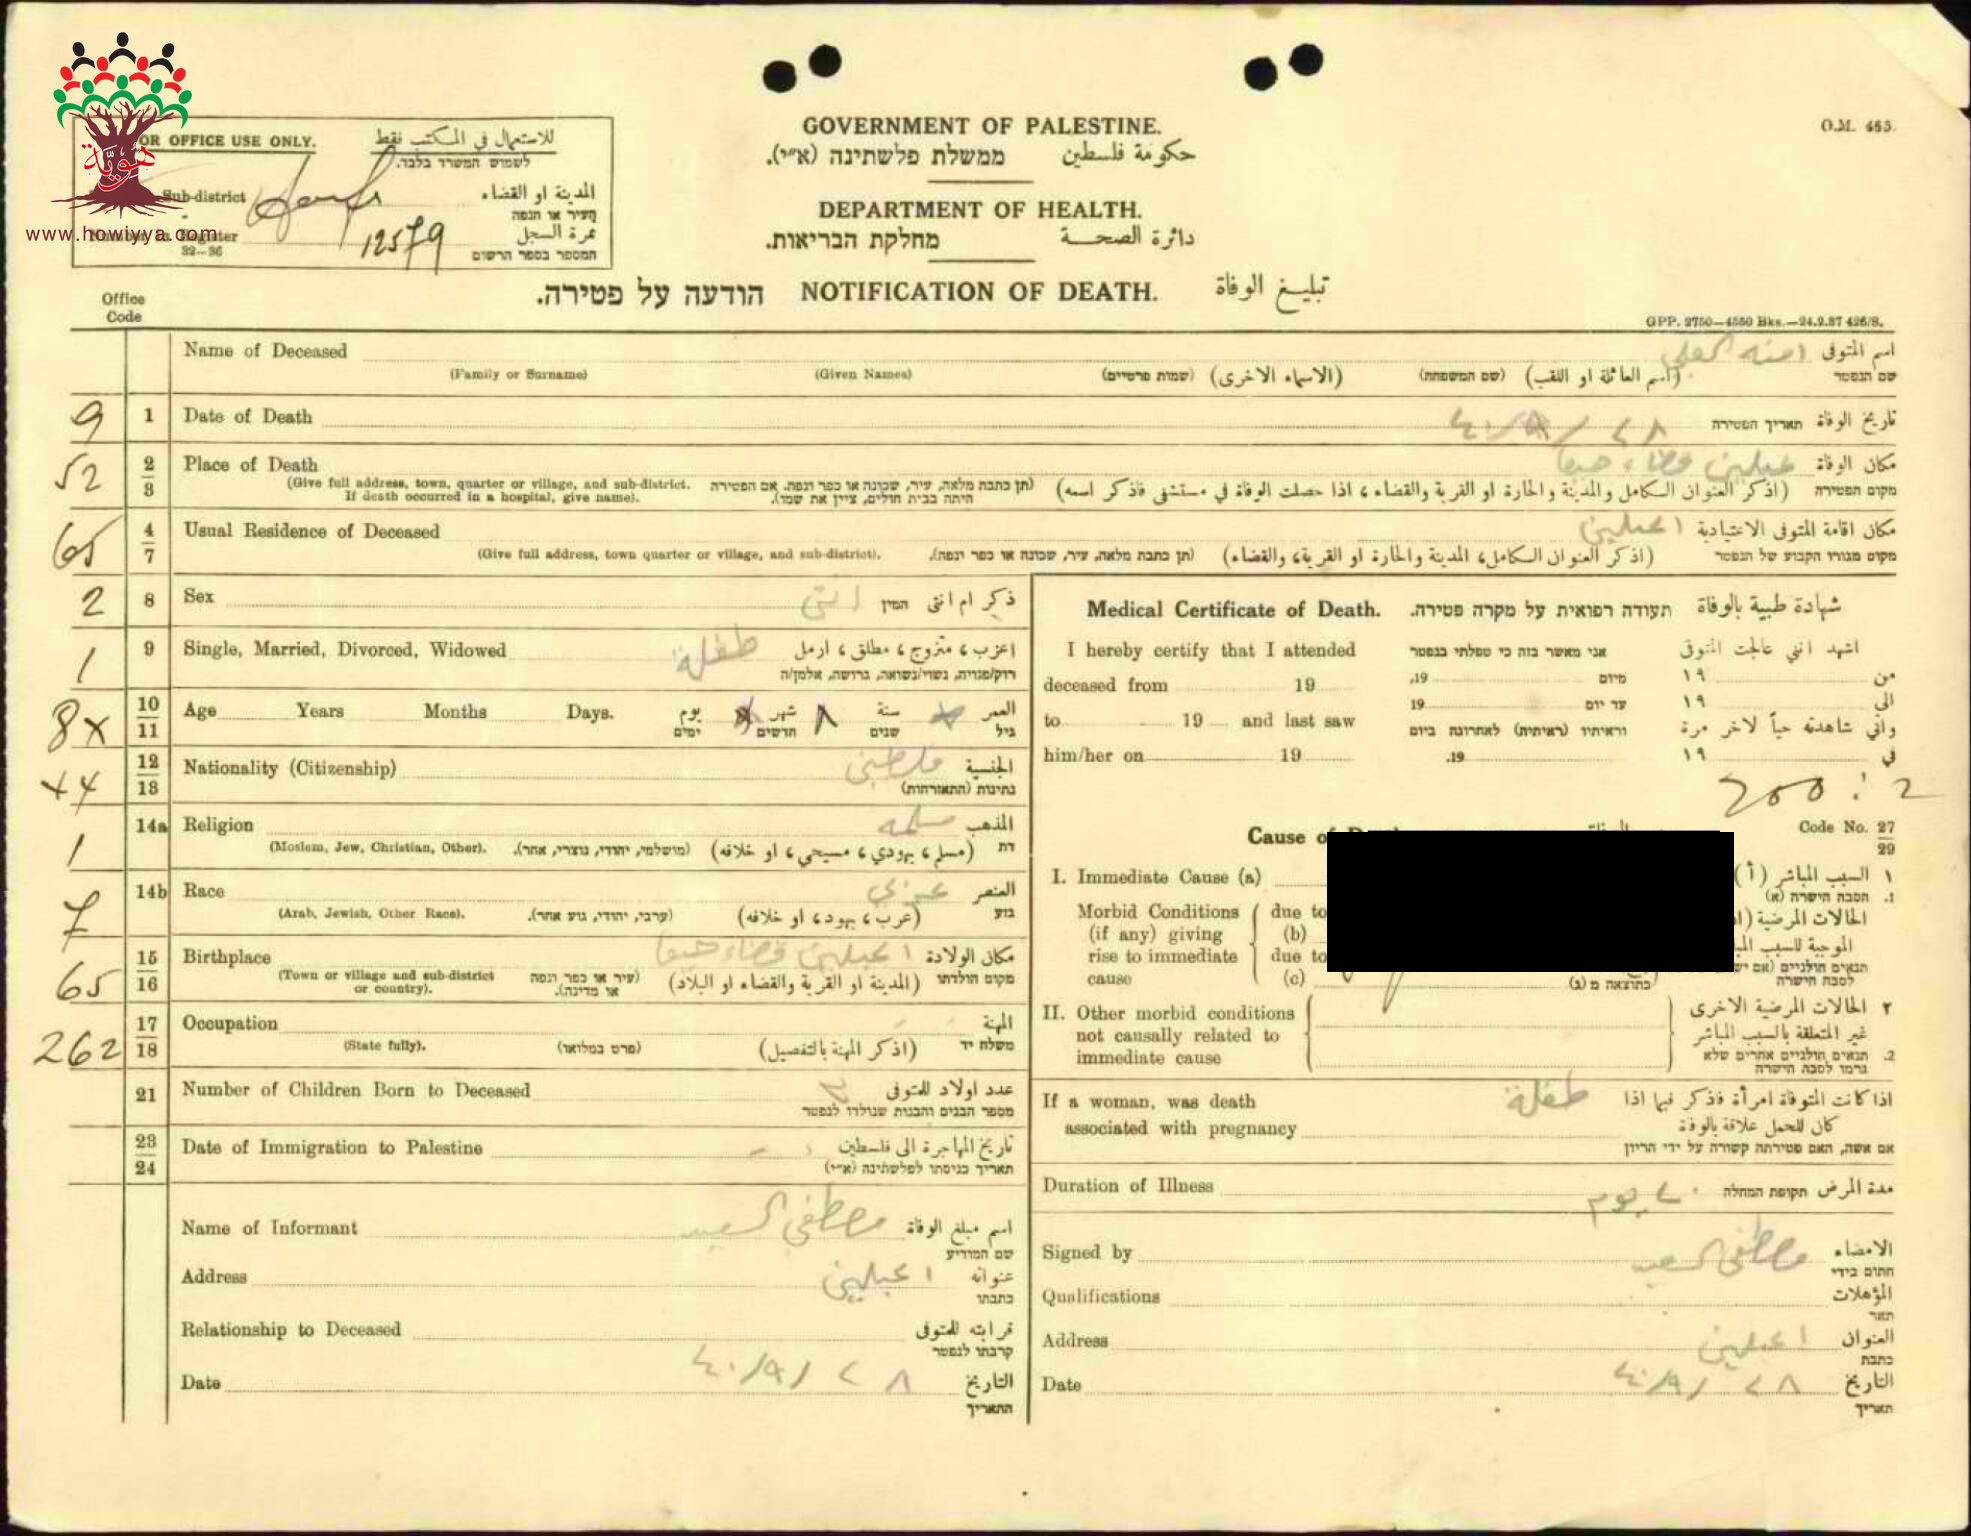 هوية
www.howiyya.com
FOR OFFICE USE ONLY. للاستعمال في المكتب نقط
לשמוש המשרד בלבד.
Sub-district المدينة او القضاء
העיר או הנפה
Register 12579 نمرة السجل
32—36 המספר בספר הרשום
GOVERNMENT OF PALESTINE.
ממשלת פלשתינה (א״י). حكومة فلسطين
DEPARTMENT OF HEALTH.
מחלקת הבריאות. دائرة الصحة
O.M. 465.
הודעה על פטירה. NOTIFICATION OF DEATH. تبليغ الوفاة
Office
Code
GPP. 2750—4550 Bks.—24.9.37 426/S.
Name of Deceased امنه العلي اسم المتوفى
(Family or Surname) (Given Names) (שמות פרטיים) (الاسماء الاخرى) (שם המשפחה) (اسم العائلة او اللقب) שם הנפטר
9 1 Date of Death ٢٨/٩/٤٠ תאריך הפטירה تاريخ الوفاة
52 2 Place of Death عبلين قضاء حيفا مكان الوفاة
3 (Give full address, town, quarter or village, and sub-district. (תן כתבת מלאה, עיר, שכונה או כפר ונפה. אם הפטירה (اذكر العنوان الكامل والمدينة والحارة او القرية والقضاء، اذا حصلت الوفاة في مستشفى فاذكر اسمه) מקום הפטירה
If death occurred in a hospital, give name). היתה בבית חולים, ציין את שמו).
65 4 Usual Residence of Deceased اعبلين مكان اقامة المتوفى الاعتيادية
7 (Give full address, town quarter or village, and sub-district). (תן כתבת מלאה, עיר, שכונה או כפר ונפה). (اذكر العنوان الكامل، المدينة والحارة او القرية، والقضاء) מקום מגורו הקבוע של הנפטר
2 8 Sex انثى המין ذكر ام انثى
1 9 Single, Married, Divorced, Widowed طفلة اعزب، متزوج، مطلق، ارمل
רוק/פנויה, נשוי/נשואה, גרושה, אלמן/ה
8x 10 Age Years Months Days. يوم شهر ٨ سنة العمر
11 ימים חדשים שנים גיל
44 12 Nationality (Citizenship) فلسطيني الجنسية
13 נתינות (התאזרחות)
1 14a Religion مسلمه المذهب
(Moslem, Jew, Christian, Other). (מושלמי, יהודי, נוצרי, אחר). (مسلم، يهودي، مسيحي، او خلافه) דת
7 14b Race عربي العنصر
(Arab, Jewish, Other Race). (ערבי, יהודי, גזע אחר). (عرب، يهود، او خلافه) גזע
65 15 Birthplace اعبلين قضاء حيفا مكان الولادة
16 (Town or village and sub-district or country). (עיר או כפר ונפה או מדינה). (المدينة او القرية والقضاء او البلاد) מקום הולדתו
262 17 Occupation المهنة
18 (State fully). (פרט במלואו) (اذكر المهنة بالتفصيل) משלח יד
21 Number of Children Born to Deceased عدد اولاد للمتوفى
מספר הבנים והבנות שנולדו לנפטר
23 Date of Immigration to Palestine تاريخ المهاجرة الى فلسطين
24 תאריך כניסתו לפלשתינה (א״י)
Name of Informant مصطفى السعيد اسم مبلغ الوفاة
שם המודיע
Address اعبلين عنوانه
כתבתו
Relationship to Deceased قرابته للمتوفى
קרבתו לנפטר
Date ٢٨/٩/٤٠ التاريخ
התאריך
Medical Certificate of Death. תעודה רפואית על מקרה פטירה. شهادة طبية بالوفاة
I hereby certify that I attended אני מאשר בזה כי טפלתי בנפטר اشهد انني عالجت المتوفى
deceased from 19 מיום 19, من ١٩
to 19 and last saw עד יום 19 الى ١٩
וראיתיו (ראיתיה) לאחרונה ביום واني شاهدته حياً لاخر مرة
him/her on 19 19. في ١٩
200 : 2
Cause of Code No. 27
29
I. Immediate Cause (a) ١ السبب المباشر (أ)
1. הסבה הישרה (א)
Morbid Conditions due to الحالات المرضية
(if any) giving (b) الموجبة للسبب
rise to immediate due to תנאים חולניים (אם יש
cause (c) כתוצאה מ (ג) לסבה הישרה
II. Other morbid conditions ٢ الحالات المرضية الاخرى
not causally related to غير المتعلقة بالسبب المباشر
immediate cause 2. תנאים חולניים אחרים שלא
גרמו לסבה הישרה
If a woman, was death طفلة اذا كانت المتوفاة امرأة فاذكر فيما اذا
associated with pregnancy كان للحمل علاقة بالوفاة
אם אשה, האם פטירתה קשורה על ידי הריון
Duration of Illness ٢٠ يوم תקופת המחלה مدة المرض
Signed by مصطفى السعيد الامضاء
חתום בידי
Qualifications المؤهلات
תאר
Address اعبلين العنوان
כתבת
Date ٢٨/٩/٤٠ التاريخ
תאריך